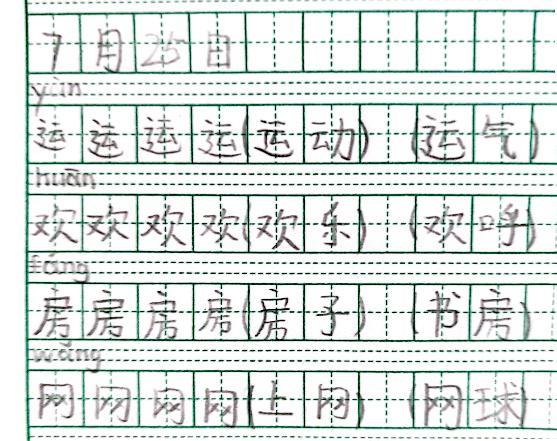 7月25日
yùn
运运运运(运动)(运气)
huān
欢欢欢欢(欢乐)(欢呼)
fáng
房房房房(房子)(书房)
wǎng
网网网网(上网)(网球)